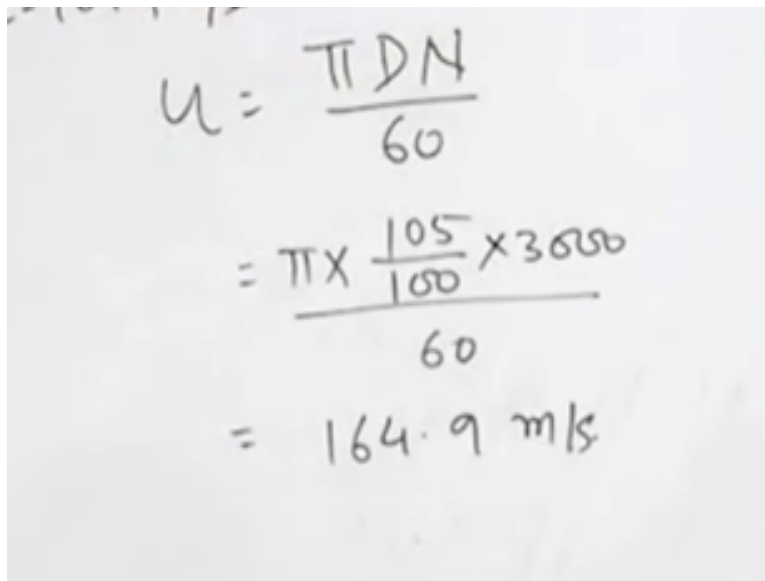 u = πDN
60
= π× 105 ×3000
100
60
= 164.9 m/s